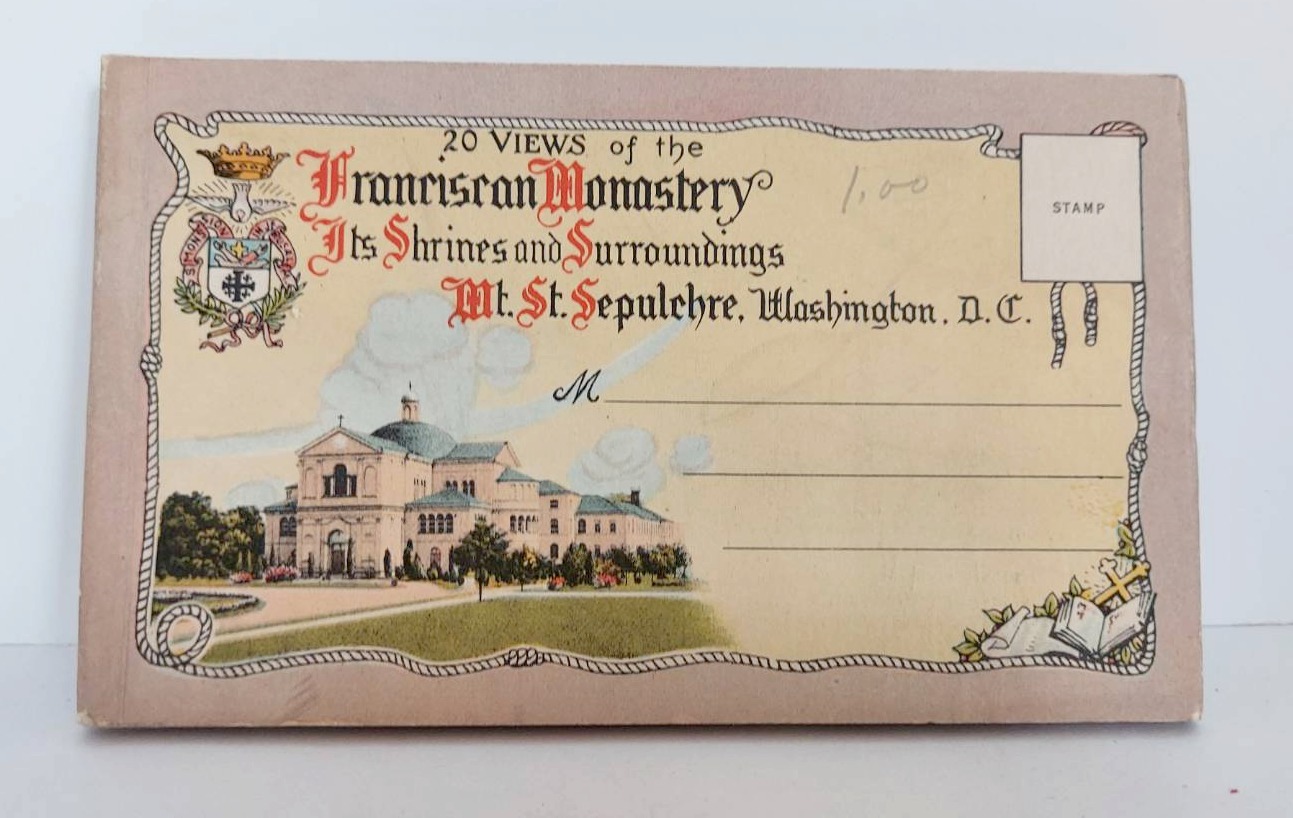 20 VIEWS of the
Franciscan Monastery
Its Shrines and Surroundings
Mt. St. Sepulchre, Washington, D.C.
1.00
STAMP
M